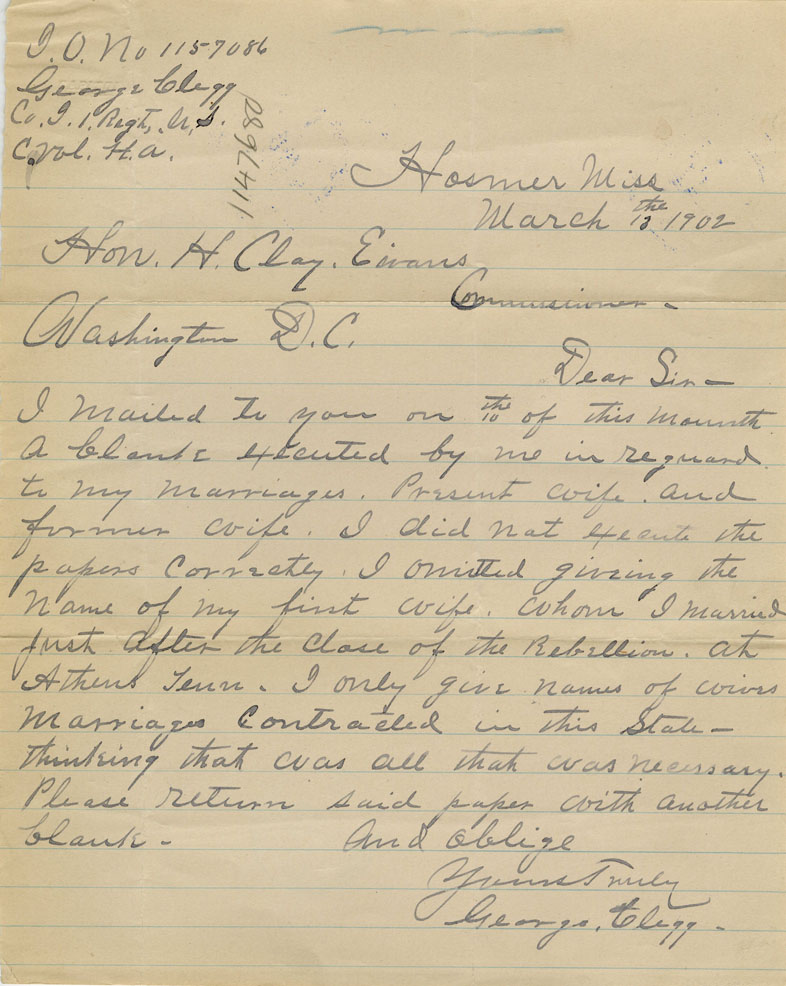 I. O. No 1157086
George Clegg
Co. I. 1. Regt, U, S.
C. Vol. H. A.
1147680
Hosmer Miss
March 13 the 1902
Hon. H. Clay. Eivans
Commissioner -
Washington D.C.
Dear Sir -
I mailed to you on the 10 of this Mounth
a blank executed by me in reguard
to my marriages. Present wife. and
former wife. I did not execute the
papers correctley. I omitted giveing the
name of my first wife. whom I married
just after the close of the Rebellion. at
Athens Tenn - I only give names of wives
marriages contracted in this State -
thinking that was all that was necessary.
Please return said paper with another
blank - And oblige
Yours Truley
George. Clegg -